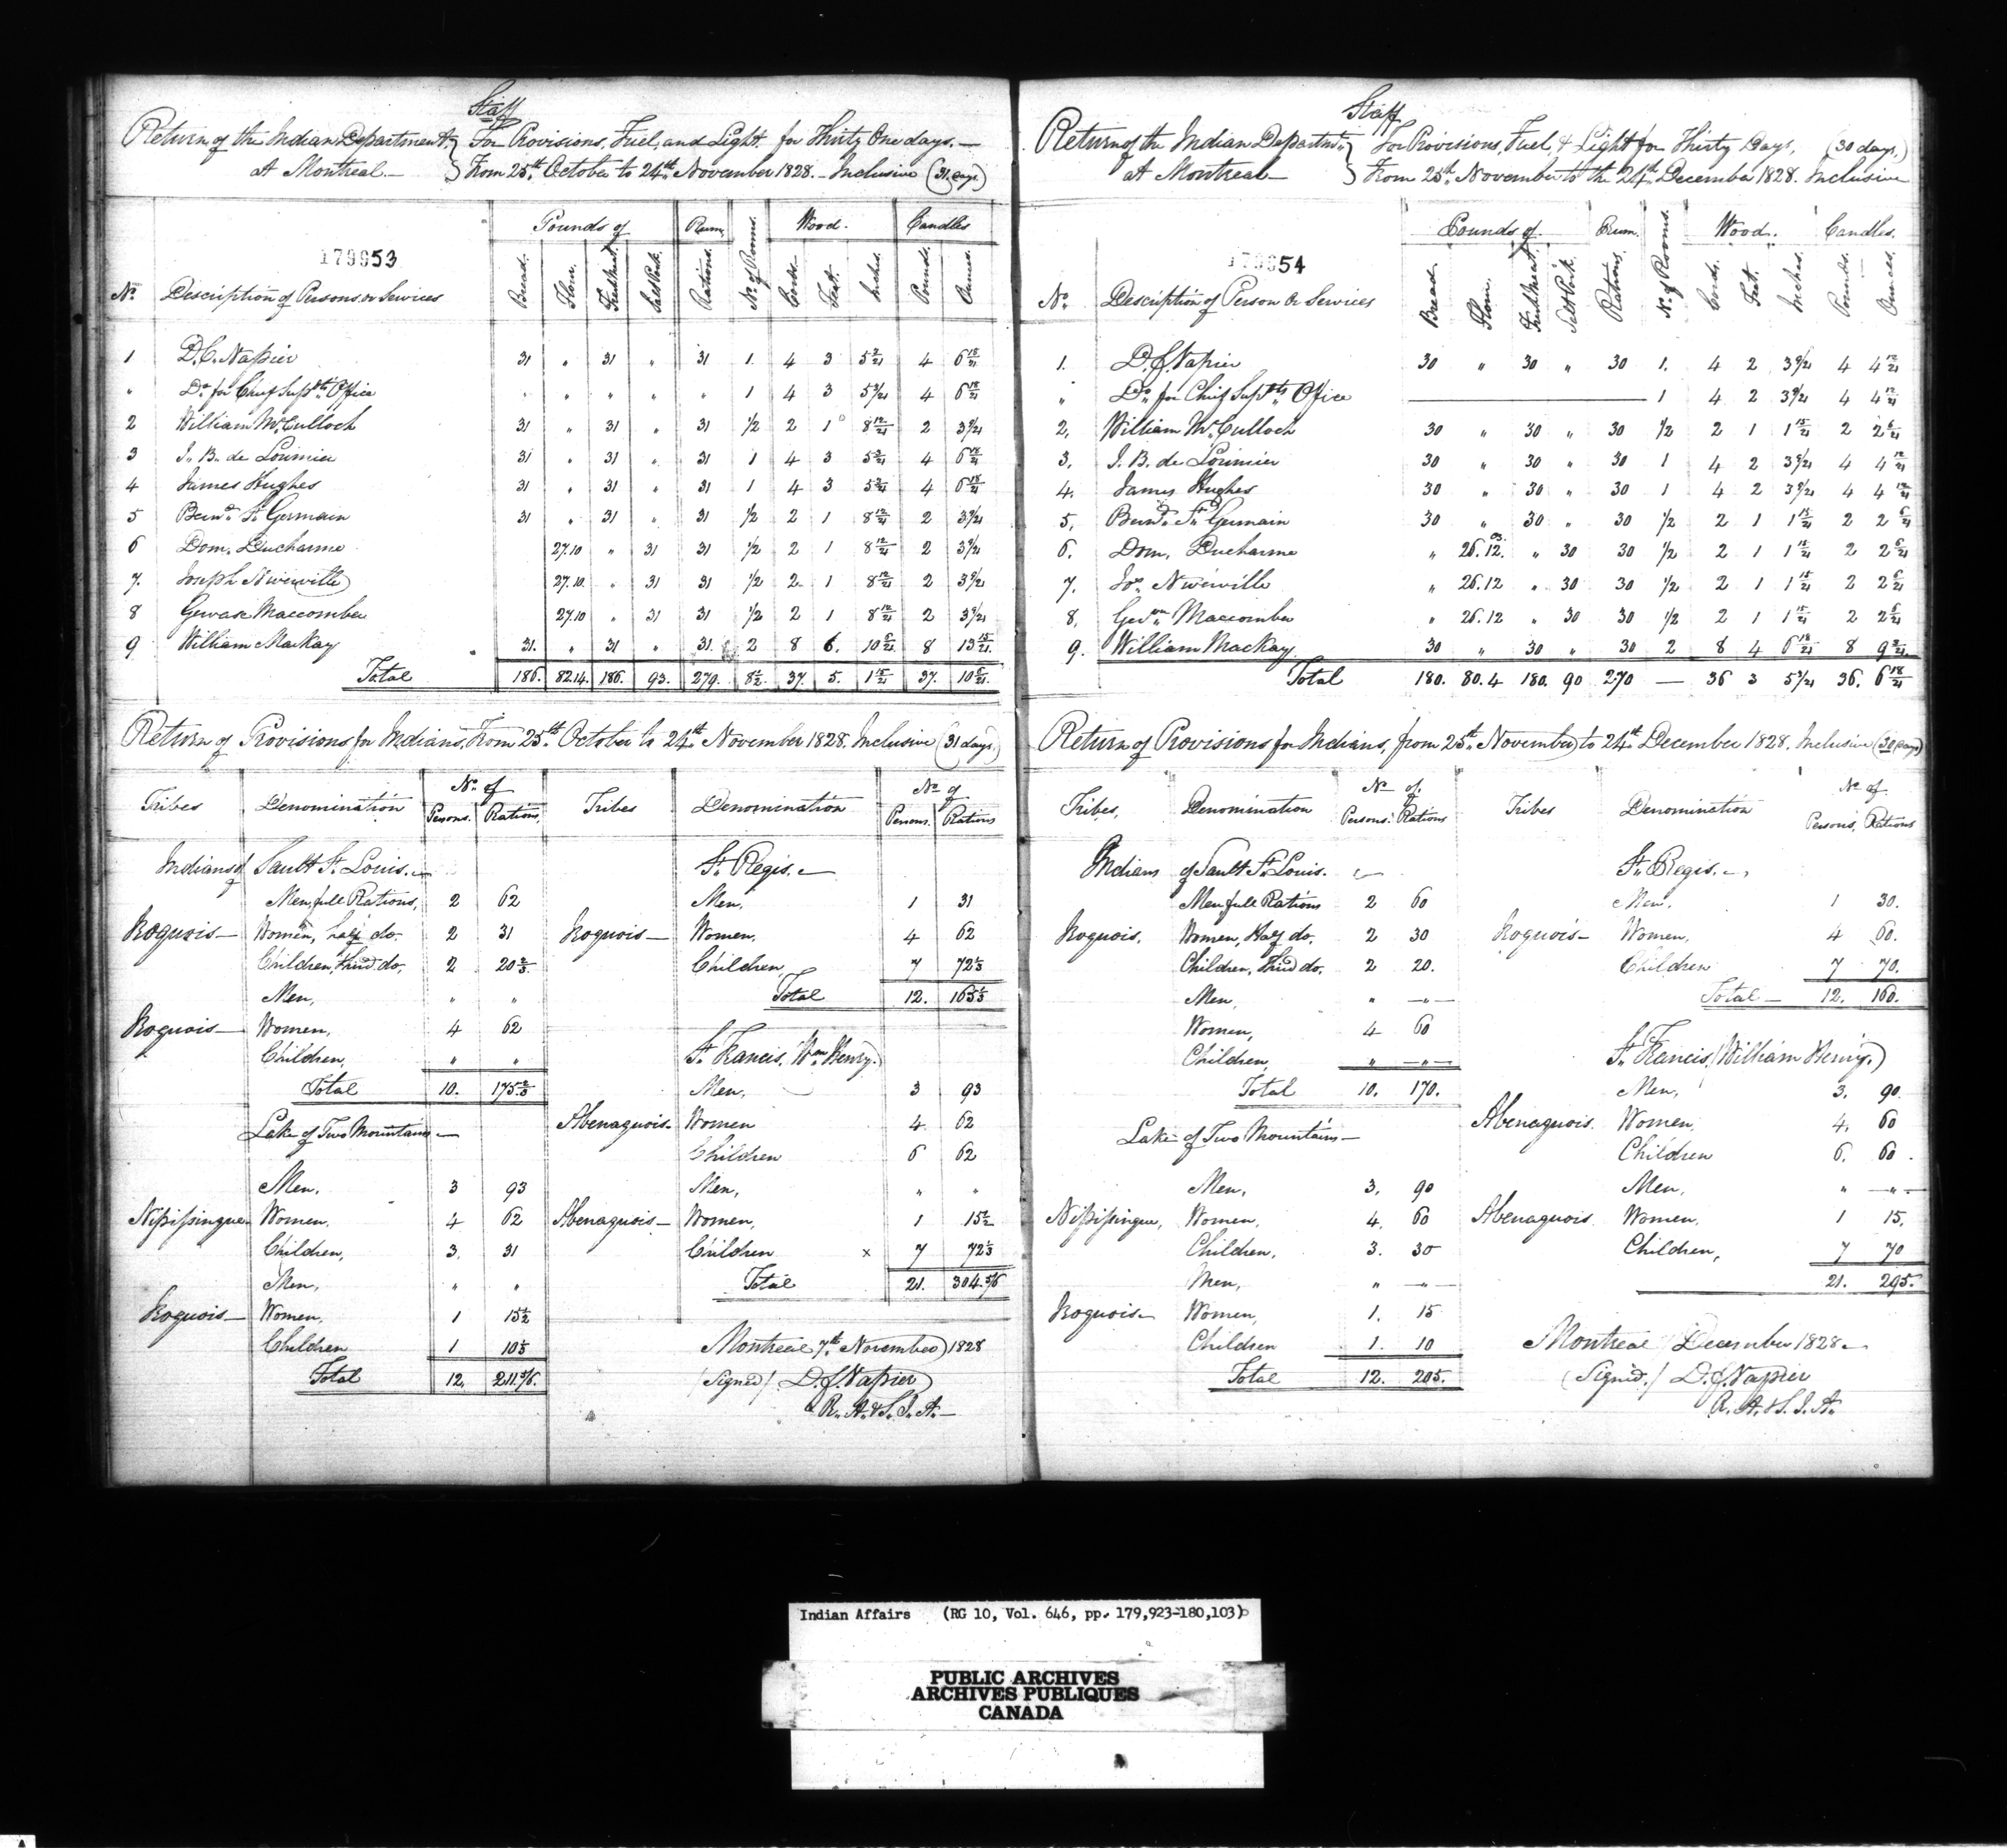 Staff
Return of the Indian Department } For Provisions, Fuel, and Light for Thirty One days.—
at Montreal— } From 25th October to 24th November 1828.— Inclusive (31 days)
179953
Pounds of Rum. Wood. Candles
No. Description of Persons or Services Bread. Flour. Fresh Meat. Salt Pork. Rations. No. of Rooms. Cords. Feet. Inches. Pounds. Ounces.
1 D.C. Napier 31 " 31 " 31 1 4 3 5 3/21 4 6 18/21
" Do. for Chief Supdts. Office " " " " " 1 4 3 5 3/21 4 6 18/21
2 William McCulloch 31 " 31 " 31 1/2 2 1 8 12/21 2 3 9/21
3 J. B. de Lorimier 31 " 31 " 31 1 4 3 5 3/21 4 6 18/21
4 James Hughes 31 " 31 " 31 1 4 3 5 3/21 4 6 18/21
5 Bernd. St. Germain 31 " 31 " 31 1/2 2 1 8 12/21 2 3 9/21
6 Dom. Ducharme 27.10 " 31 31 1/2 2 1 8 12/21 2 3 9/21
7. Joseph Niverville 27.10. " 31 31 1/2 2 1 8 12/21 2 3 9/21
8 Gervase Maccomber 27.10 " 31 31 1/2 2 1 8 12/21 2 3 9/21
9 William MacKay 31. " 31 " 31. 2 8 6. 10 6/21 8 13 15/21
Total 186. 82.14. 186. 93. 279. 8 1/2 37. 5. 1 15/21 37. 10 6/21
Return of Provisions for Indians, From 25th October to 24th November 1828. Inclusive (31 days.)
Tribes Denomination No. of Persons. Rations. Tribes Denomination No. of Persons. Rations
Indians of Sault St. Louis.—
Men, full Rations, 2 62
Iroquois— Women, half do. 2 31
Children, third do. 2 20 2/3
Men, " "
Iroquois— Women, 4 62
Children, " "
Total 10. 175 2/3
Lake of Two Mountains—
Men. 3 93
Nipissingue Women. 4 62
Children, 3. 31
Men, " "
Iroquois— Women, 1 15 1/2
Children 1 10 1/3
Total 12. 211.5/6.
St. Regis.—
Men, 1 31
Iroquois— Women, 4 62
Children, 7 72 1/3
Total 12. 165 1/3
St. Francis. (Wm. Henry.)
Men, 3 93
Abenaquois— Women 4. 62
Children 6 62
Men, " "
Abenaquois— Women, 1 15 1/2
Children x 7 72 1/3
Total 21. 304.5/6
Montreal 7th. November 1828
(Signed) D. C. Napier
R. A. & S. I. A.—
Staff
Return of the Indian Departmt. } For Provisions, Fuel, & Light for Thirty Days, (30 days.)
at Montreal— } From 25th. November to the 24th December 1828. Inclusive
54
Pounds of. Rum. Wood. Candles.
No. Description of Person or Services Bread. Flour. Fresh Meat. Salt Pork. Rations. No. of Rooms. Cords. Feet. Inches. Pounds. Ounces.
1. D. C. Napier 30 " 30 " 30 1. 4 2 3 9/21 4 4 12/21
" Do. for Chief Supdts. Office 1 4 2 3 9/21 4 4 12/21
2, William McCulloch 30 " 30 " 30 1/2 2 1 1 15/21 2 2 6/21
3. J. B. de Lorimier 30 " 30 " 30 1 4 2 3 9/21 4 4 12/21
4. James Hughes 30 " 30 " 30 1 4 2 3 9/21 4 4 12/21
5, Bernd. St. Germain 30 " 30 " 30 1/2 2 1 1 15/21 2 2 6/21
6. Dom. Ducharme " 26.12. " 30 30 1/2 2 1 1 15/21 2 2 6/21
7. Jos. Niverville " 26.12 " 30 30 1/2 2 1 1 15/21 2 2 6/21
8. Maccomber " 26.12 " 30 30 1/2 2 1 1 15/21 2 2 6/21
9. William MacKay. 30 " 30 " 30 2 8 4 6 18/21 8 9 3/21
Total 180. 80.4 180. 90 270 — 36 3 5 3/21 36. 6 18/21
Return of Provisions for Indians, from 25th. November to 24th December 1828. Inclusive (30 days)
Tribes, Denomination No. of. Persons. Rations Tribes Denomination No. of. Persons, Rations
Indians of Sault St. Louis.
Men full Rations 2 60
Iroquois, Women, Half do. 2 30
Children, third do. 2 20.
Men, " — " —
Women, 4 60
Children, " — " —
Total 10. 170.
Lake of Two Mountains—
Men, 3. 90
Nipissingue, Women, 4. 60
Children, 3. 30
Men, " — " —
Iroquois— Women, 1. 15
Children 1. 10
Total 12. 205.
St. Regis.—
Men. 1 30.
Iroquois— Women, 4 60.
Children 7 70.
Total— 12. 160.
St. Francis, (William Henry.)
Men, 3. 90.
Abenaquois. Women, 4. 60
Children 6. 60.
Men, " — " —
Abenaquois. Women. 1 15.
Children, 7 70
21. 295.
Montreal December 1828—
(Signed.) D. C. Napier
R. A. & S. I. A.
Indian Affairs (RG 10, Vol. 646, pp. 179,923-180,103)
PUBLIC ARCHIVES
ARCHIVES PUBLIQUES
CANADA